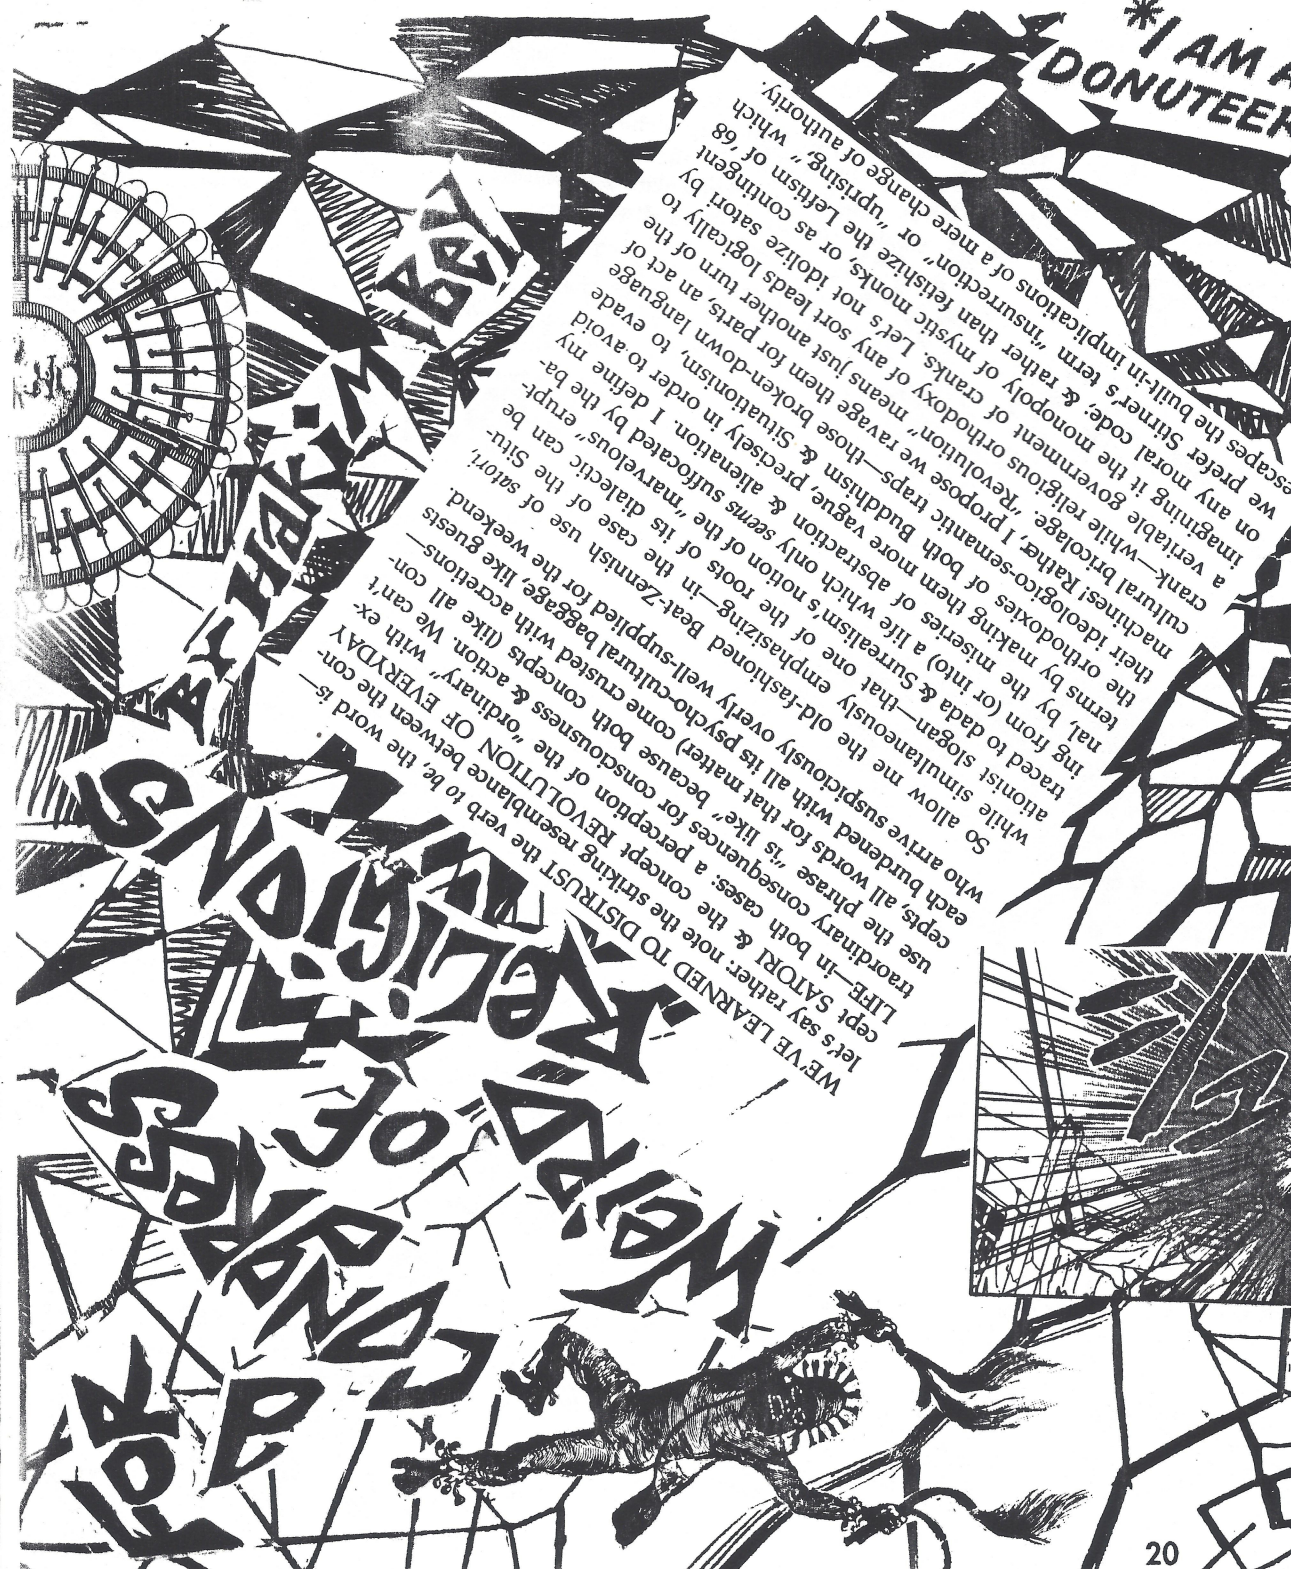 *I AM A
DONUTEER
FOR
A
CONGRESS
OF
WEIRD
RELIGIONS
BY HAKIM
BEY
WE'VE LEARNED TO DISTRUST the verb to be, the word is—
let's say rather: note the striking resemblance between the con-
cept SATORI & the concept REVOLUTION OF EVERYDAY
LIFE—in both cases: a perception of the "ordinary" with ex-
traordinary consequences for consciousness & action. We can't
use the phrase "is like" because both concepts (like all con-
cepts, all words for that matter) come crusted with accretions—
each burdened with all its psycho-cultural baggage, like guests
who arrive suspiciously overly well-supplied for the weekend.
So allow me the old-fashioned Beat-Zennish use of satori,
while simultaneously emphasizing—in the case of the Situ-
ationist slogan—that one of the roots of its dialectic can be
traced to dada & Surrealism's notion of the "marvelous" erupt-
ing from (or into) a life which only seems suffocated by the ba-
nal, by the miseries of abstraction & alienation. I define my
terms by making them more vague, precisely in order to avoid
the orthodoxies of both Buddhism & Situationism, to evade
their ideologico-semantic traps—those broken-down language
machines! Rather, I propose we ravage them for parts, an act of
cultural bricolage. "Revolution" means just another turn of the
crank—while religious orthodoxy of any sort leads logically to
a veritable government of cranks. Let's not idolize satori by
imagining it the monopoly of mystic monks, or as contingent
on any moral code; & rather than fetishize the Leftism of '68
we prefer Stirner's term "insurrection" or "uprising," which
escapes the built-in implications of a mere change of authority.
20